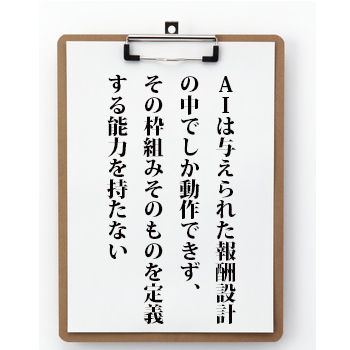 AIは与えられた報酬設計
の中でしか動作できず、
その枠組みそのものを定義
する能力を持たない